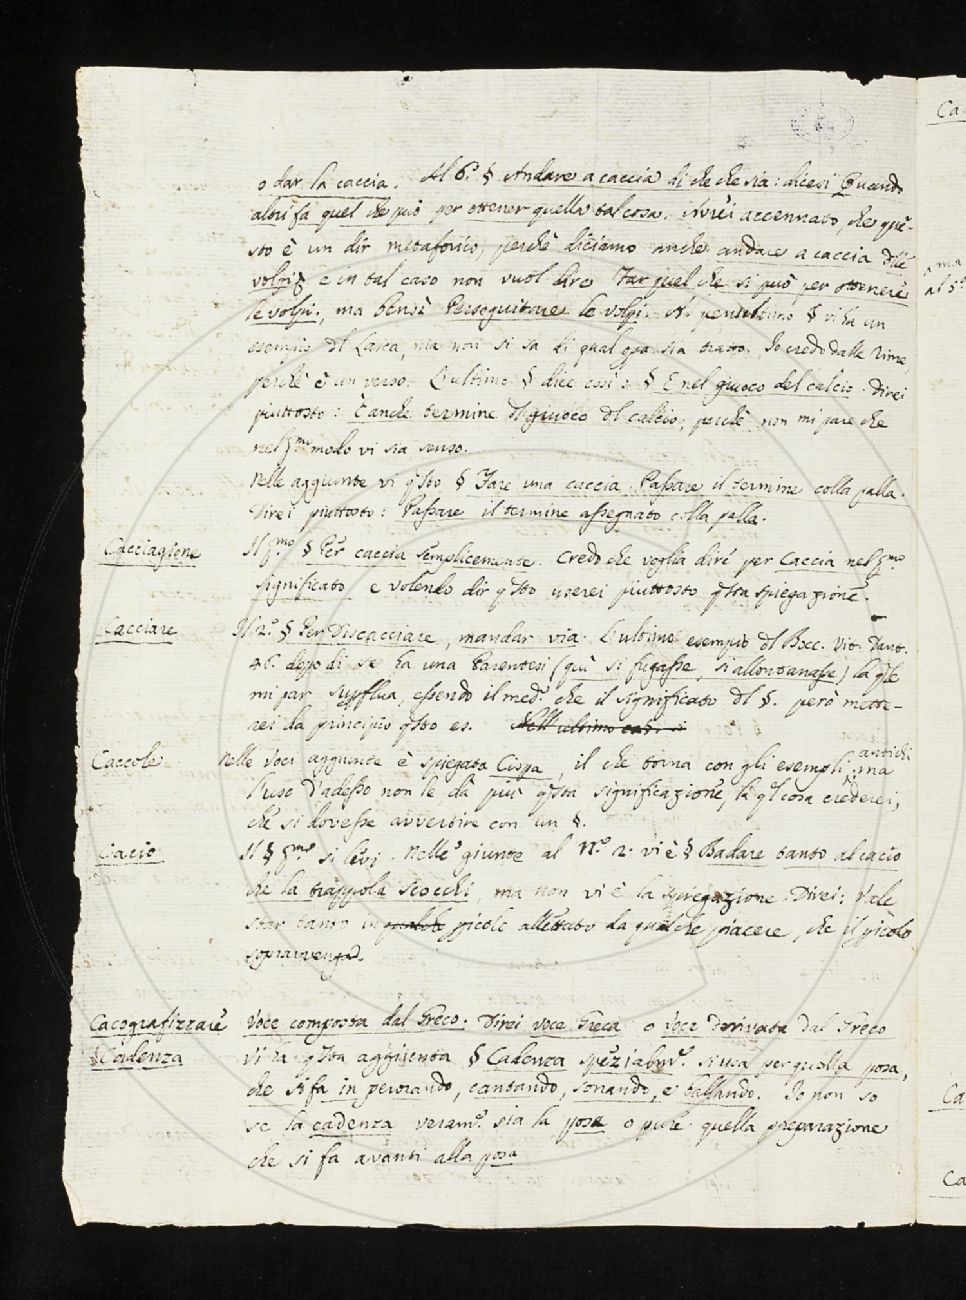 o dar la caccia. Al 6.º § Andare a caccia di che che sia: dicesi Quando
altri fa quel che può per ottener quella tal cosa. Avrei accennato, che que-
sto è un dir metaforico, perchè diciamo anche andare a caccia delle
volpi, e in tal caso non vuol dire Far quel che si può per ottenere
le volpi, ma bensì Perseguitare le volpi. Al penultimo § vi ha un
esempio dl Lasca, ma non si sa di qual opa sia tratto. Io credo dalle Rime
perchè è un verso. L'ultimo § dice così: § E nel giuoco del calcio. Direi
piuttosto: È anche termine dl giuoco dl calcio, perchè non mi pare che
nel pmo modo vi sia senso.
Nelle aggiunte vi qsto § Fare una caccia. Passare il termine colla palla.
Direi piuttosto: Passare il termine assegnato colla palla.
Cacciagione Il pmo § Per caccia semplicemente. Credo che voglia dire per Caccia nel pmo
significato e volendo dir qsto userei piuttosto qsta spiegazione.
Cacciare Il 2.º § Per Discacciare, mandar via. L'ultimo esempio dl Bocc. Vit. Dant.
46. dopo di se ha una Parentesi (qui si fugasse, si allontanasse) la qle
mi par supflua, essendo il med.º che il significato dl §. però mette-
rei da principio qsto es. Nell'ultimo
Caccole Nelle Voci aggiunte è spiegata Cispa, il che torna con gli esempli antichi; ma
l'uso d'adesso non le dà più qsta significazione, la ql cosa crederei,
che si dovesse avvertire con un §.
Cacio Il § pmo si levi. Nelle giunte al N.º 2. vi è § Badare tanto al cacio
che la trappola scocchi, ma non vi è la spiegazione. Direi: Vale
star tanto in picolo allettato da qualche piacere, che il picolo
sopravvenga.
Cacografizzare Voce composta dal Greco. Direi Voce Greca o Voce derivata dal Greco
Cadenza Vi ha qsta aggiunta § Cadenza spezialm.e si usa per quella posa,
che si fa in perorando, cantando, sonando, e ballando. Io non so
se la cadenza veram.e sia la posa o pure quella preparazione
che si fa avanti alla posa
Ca
ma
al 5.º
Ca
Ca